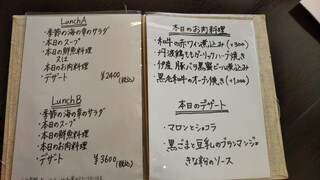 Lunch A
・季節の海の幸のサラダ
・本日のスープ
・本日の鮮魚料理
又は
・本日のお肉料理
・デザート ¥2400(税込)
Lunch B
・季節の海の幸のサラダ
・本日のスープ
・本日の鮮魚料理
・本日のお肉料理
・デザート ¥3600(税込)
本日のお肉料理
・和牛の赤ワイン煮込み(+300)
・丹波鶏ももガーリックハーブ焼き
・伊産 豚バラ黒蜜ビール煮込み
・黒毛和牛のオーブン焼き(+1,000)
本日のデザート
・マロンとショコラ
・黒ごまと豆乳のブランマンジェ
きな粉のソース